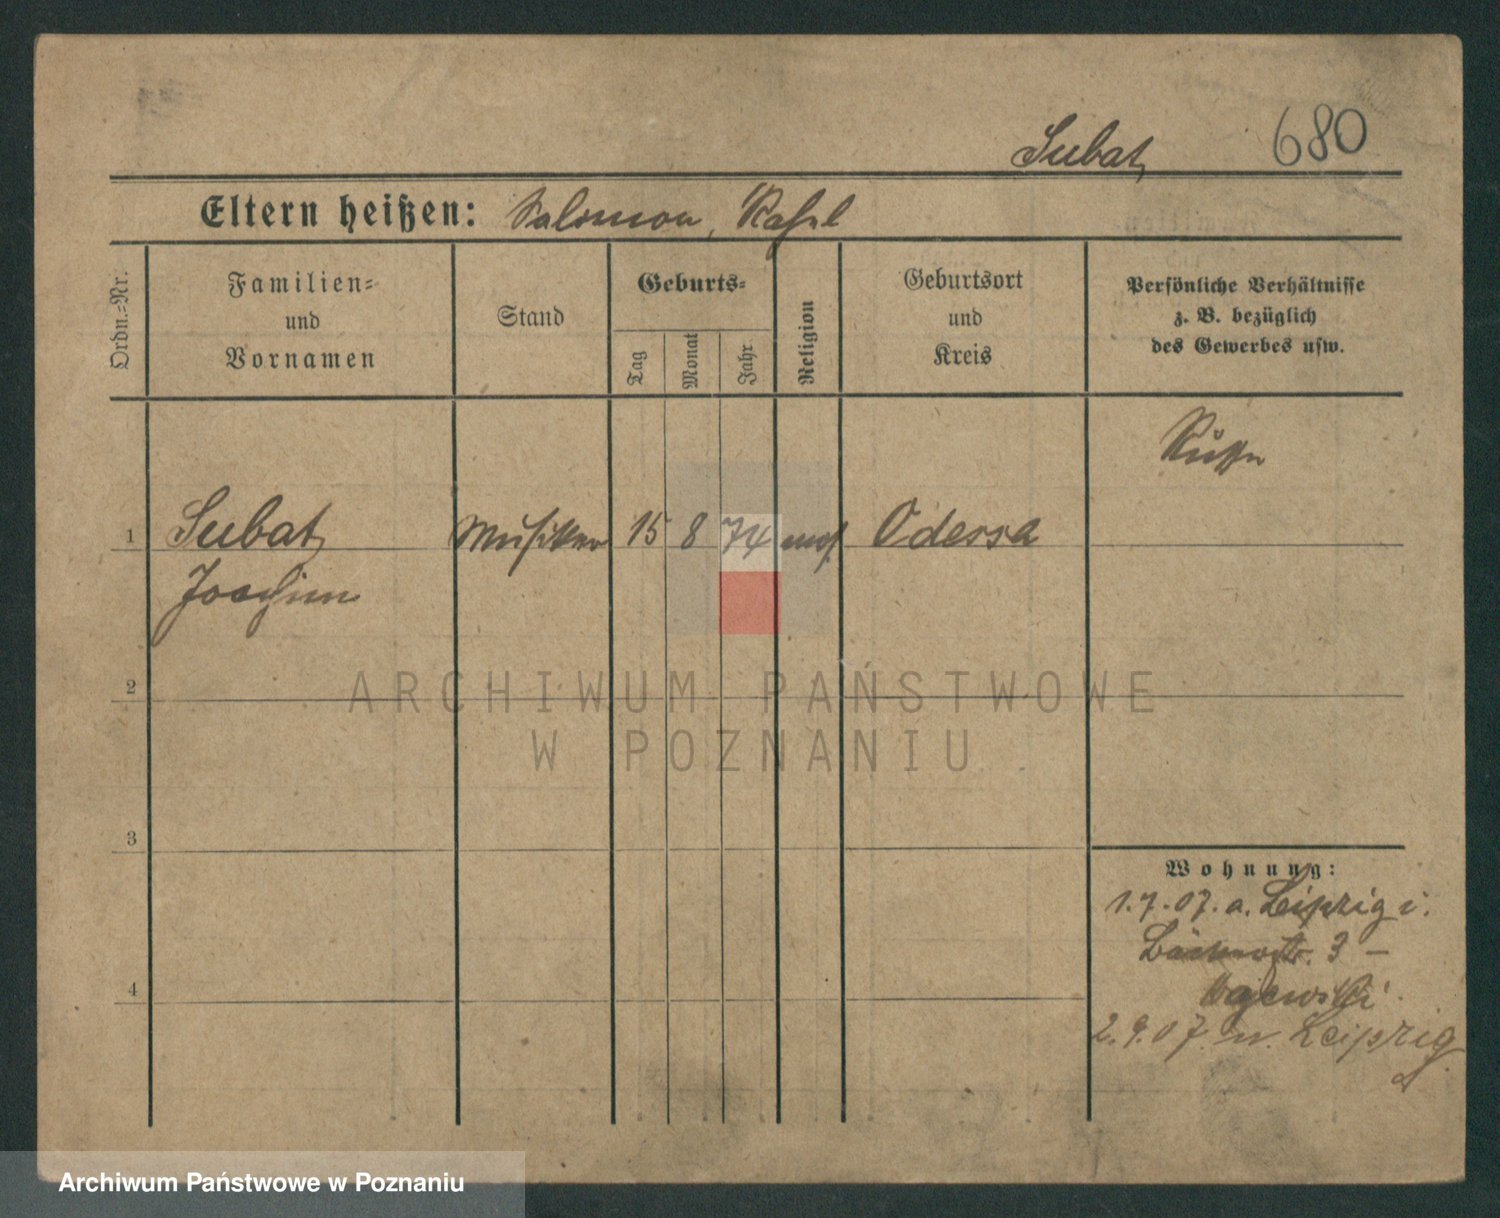 Subat,
680
Eltern heißen: Salomon, Rahel
Ordn.-Nr.
Familien-
und
Vornamen
Stand
Geburts-
Tag
Monat
Jahr
Religion
Geburtsort
und
Kreis
Persönliche Verhältnisse
z. B. bezüglich
des Gewerbes usw.
Russe
1 Subat, Musiker 15 8 74 mos. Odessa
Joachim
2
ARCHIWUM PAŃSTWOWE
W POZNANIU
3
Wohnung:
1.7.07. a. Leipzig i.
3 –
4
2.9.07. n. Leipzig
Archiwum Państwowe w Poznaniu